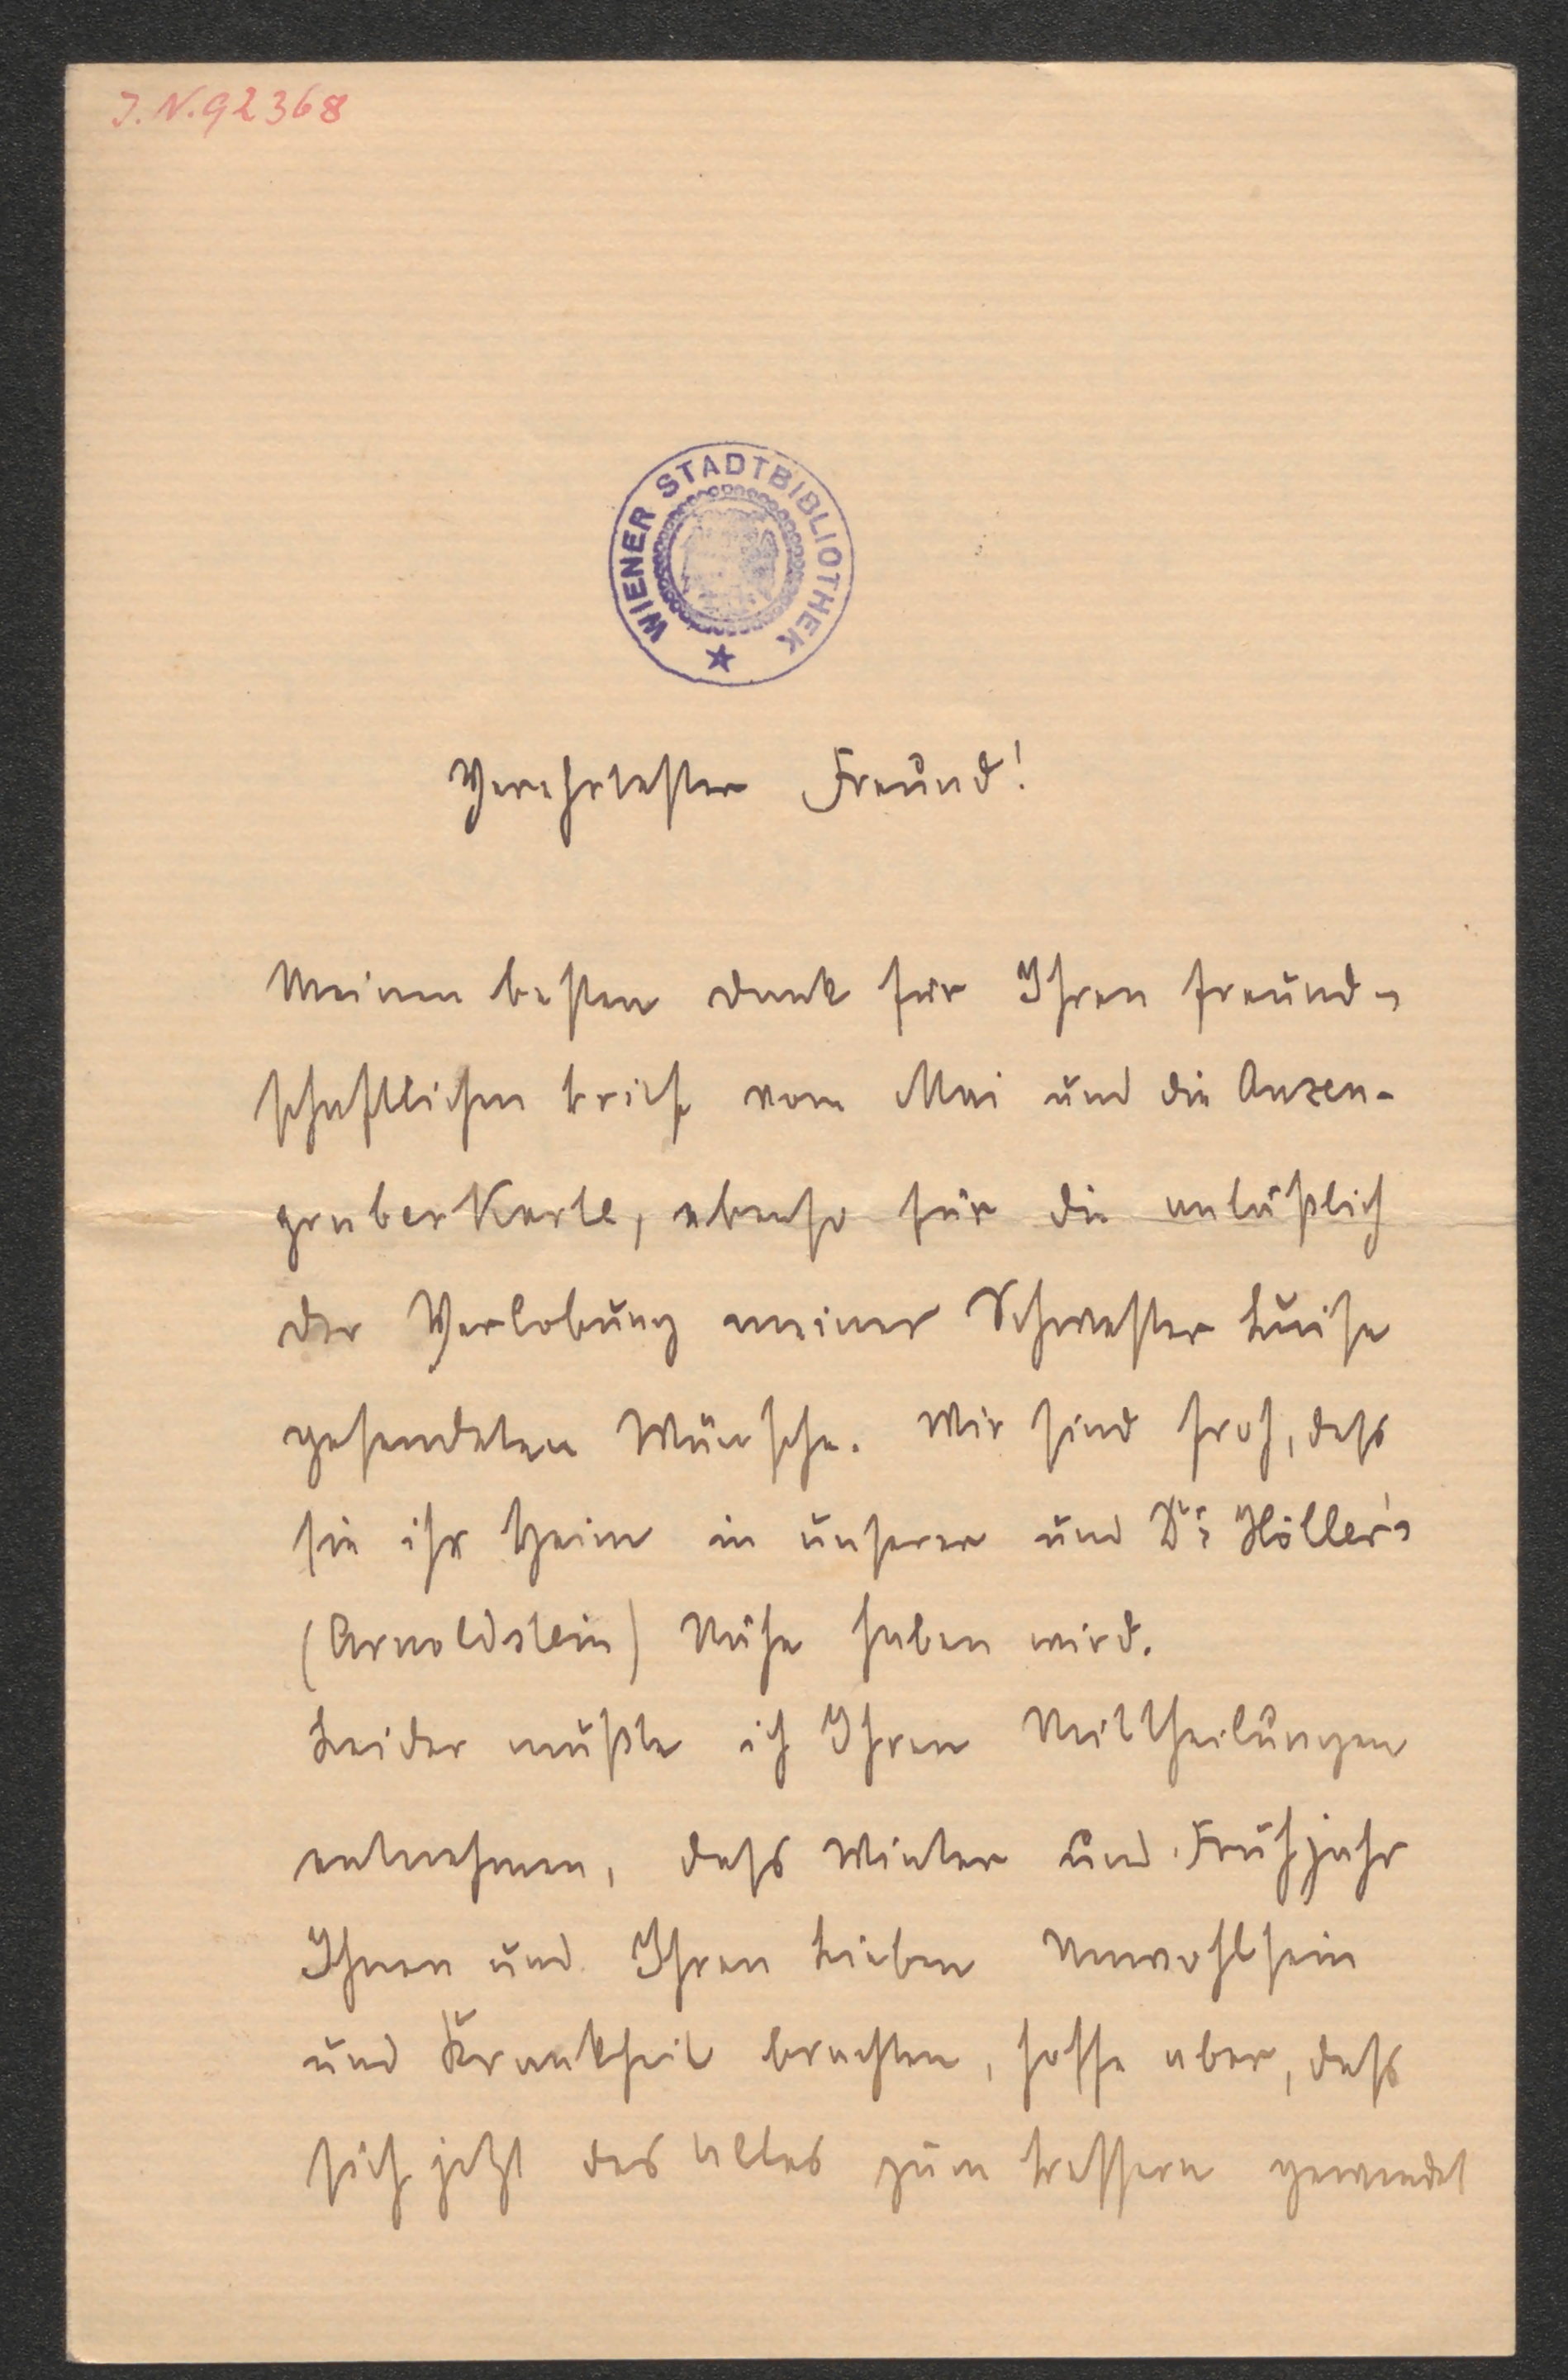 J. N. 92368
WIENER STADTBIBLIOTHEK
Verehrtester Freund!
Meinen besten Dank für Ihren freund-
schaftlichen Brief vom Mai und die Anzen-
gruber Karte, ebenso für die anläßlich
der Verlobung meiner Schwester Luise
gesendeten Wünsche. Wir sind froh, dass
sie ihr Heim in unserer und Dr Höller's
(Arnoldstein) Nähe haben wird.
Leider mußte ich Ihren Mittheilungen
entnehmen, dass Winter und Frühjahr
Ihnen und Ihren Lieben Unwohlsein
und Krankheit brachten, hoffe aber, dass
sich jetzt das alles zum bessern gewendet